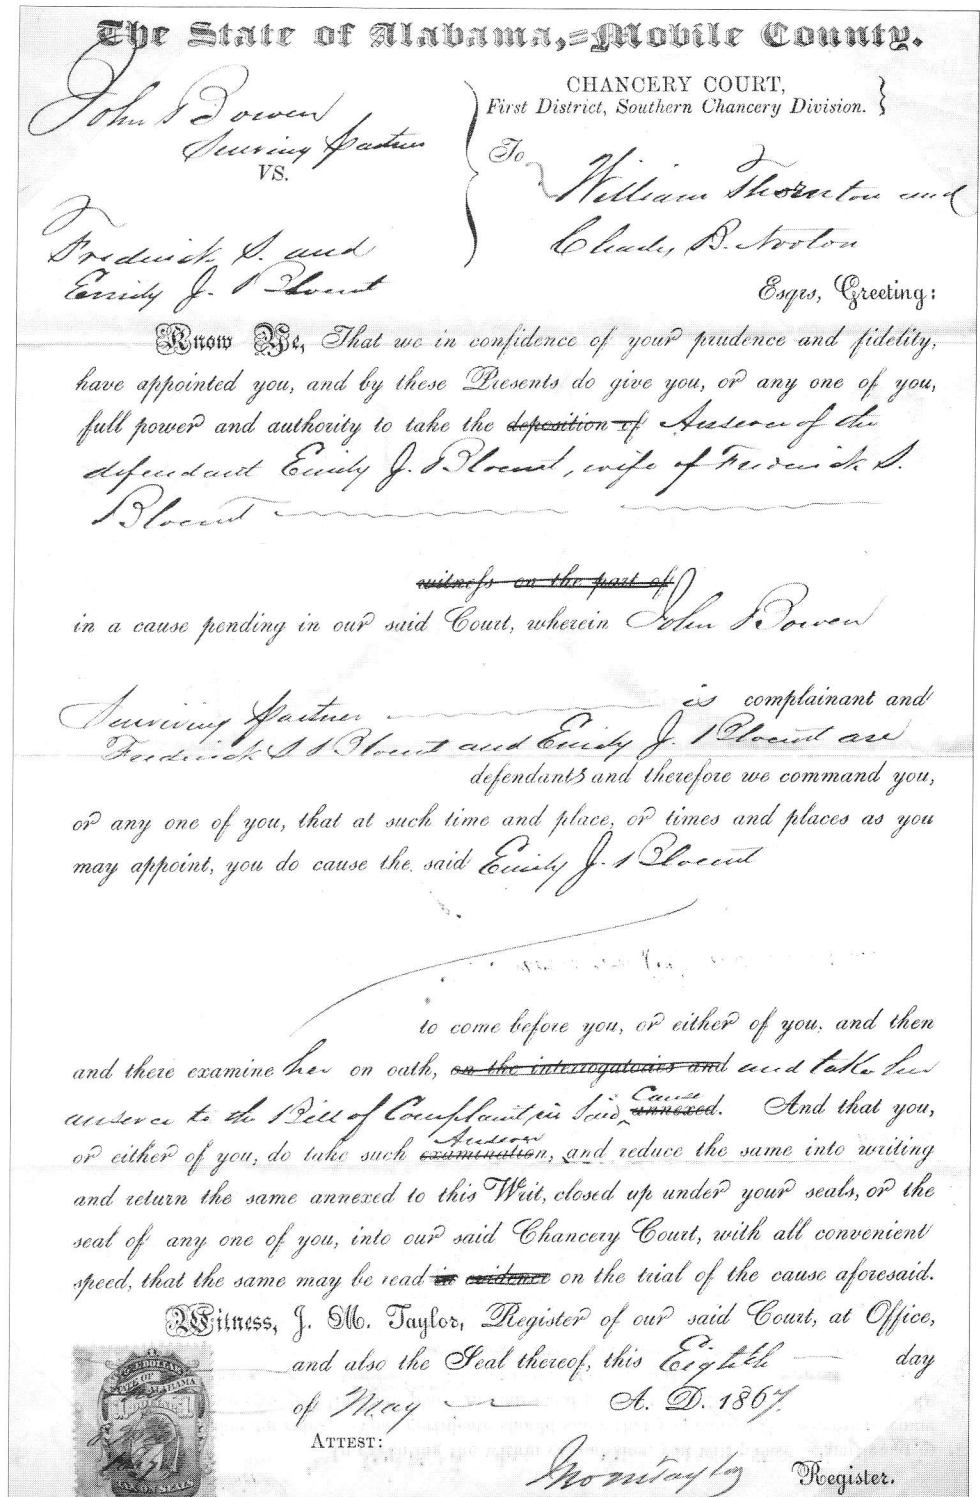 The State of Alabama,=Mobile County.
John Bowen
Surviving partner
VS.
Frederick S. and
Emily J. Blount
CHANCERY COURT,
First District, Southern Chancery Division.
To
William Thornton and
Charles B. Norton
Esqrs, Greeting:
Know Ye, That we in confidence of your prudence and fidelity,
have appointed you, and by these Presents do give you, or any one of you,
full power and authority to take the deposition of Answer of the
defendant Emily J. Blount, wife of Frederick S.
Blount
witness on the part of
in a cause pending in our said Court, wherein John Bowen
Surviving partner is complainant and
Frederick S Blount and Emily J. Blount are
defendants and therefore we command you,
or any one of you, that at such time and place, or times and places as you
may appoint, you do cause the said Emily J. Blount
to come before you, or either of you, and then
and there examine her on oath, on the interrogatoirs and and take her
answer to the Bill of Complaint in said Cause annexed. And that you,
or either of you, do take such Answer examination, and reduce the same into writing
and return the same annexed to this Writ, closed up under your seals, or the
seal of any one of you, into our said Chancery Court, with all convenient
speed, that the same may be read in evidence on the trial of the cause aforesaid.
Witness, J. M. Taylor, Register of our said Court, at Office,
and also the Seal thereof, this Eighth day
of May A. D. 1867.
ATTEST:
Jno M Taylor Register.
STATE OF
ALABAMA
TAX ON SEALS